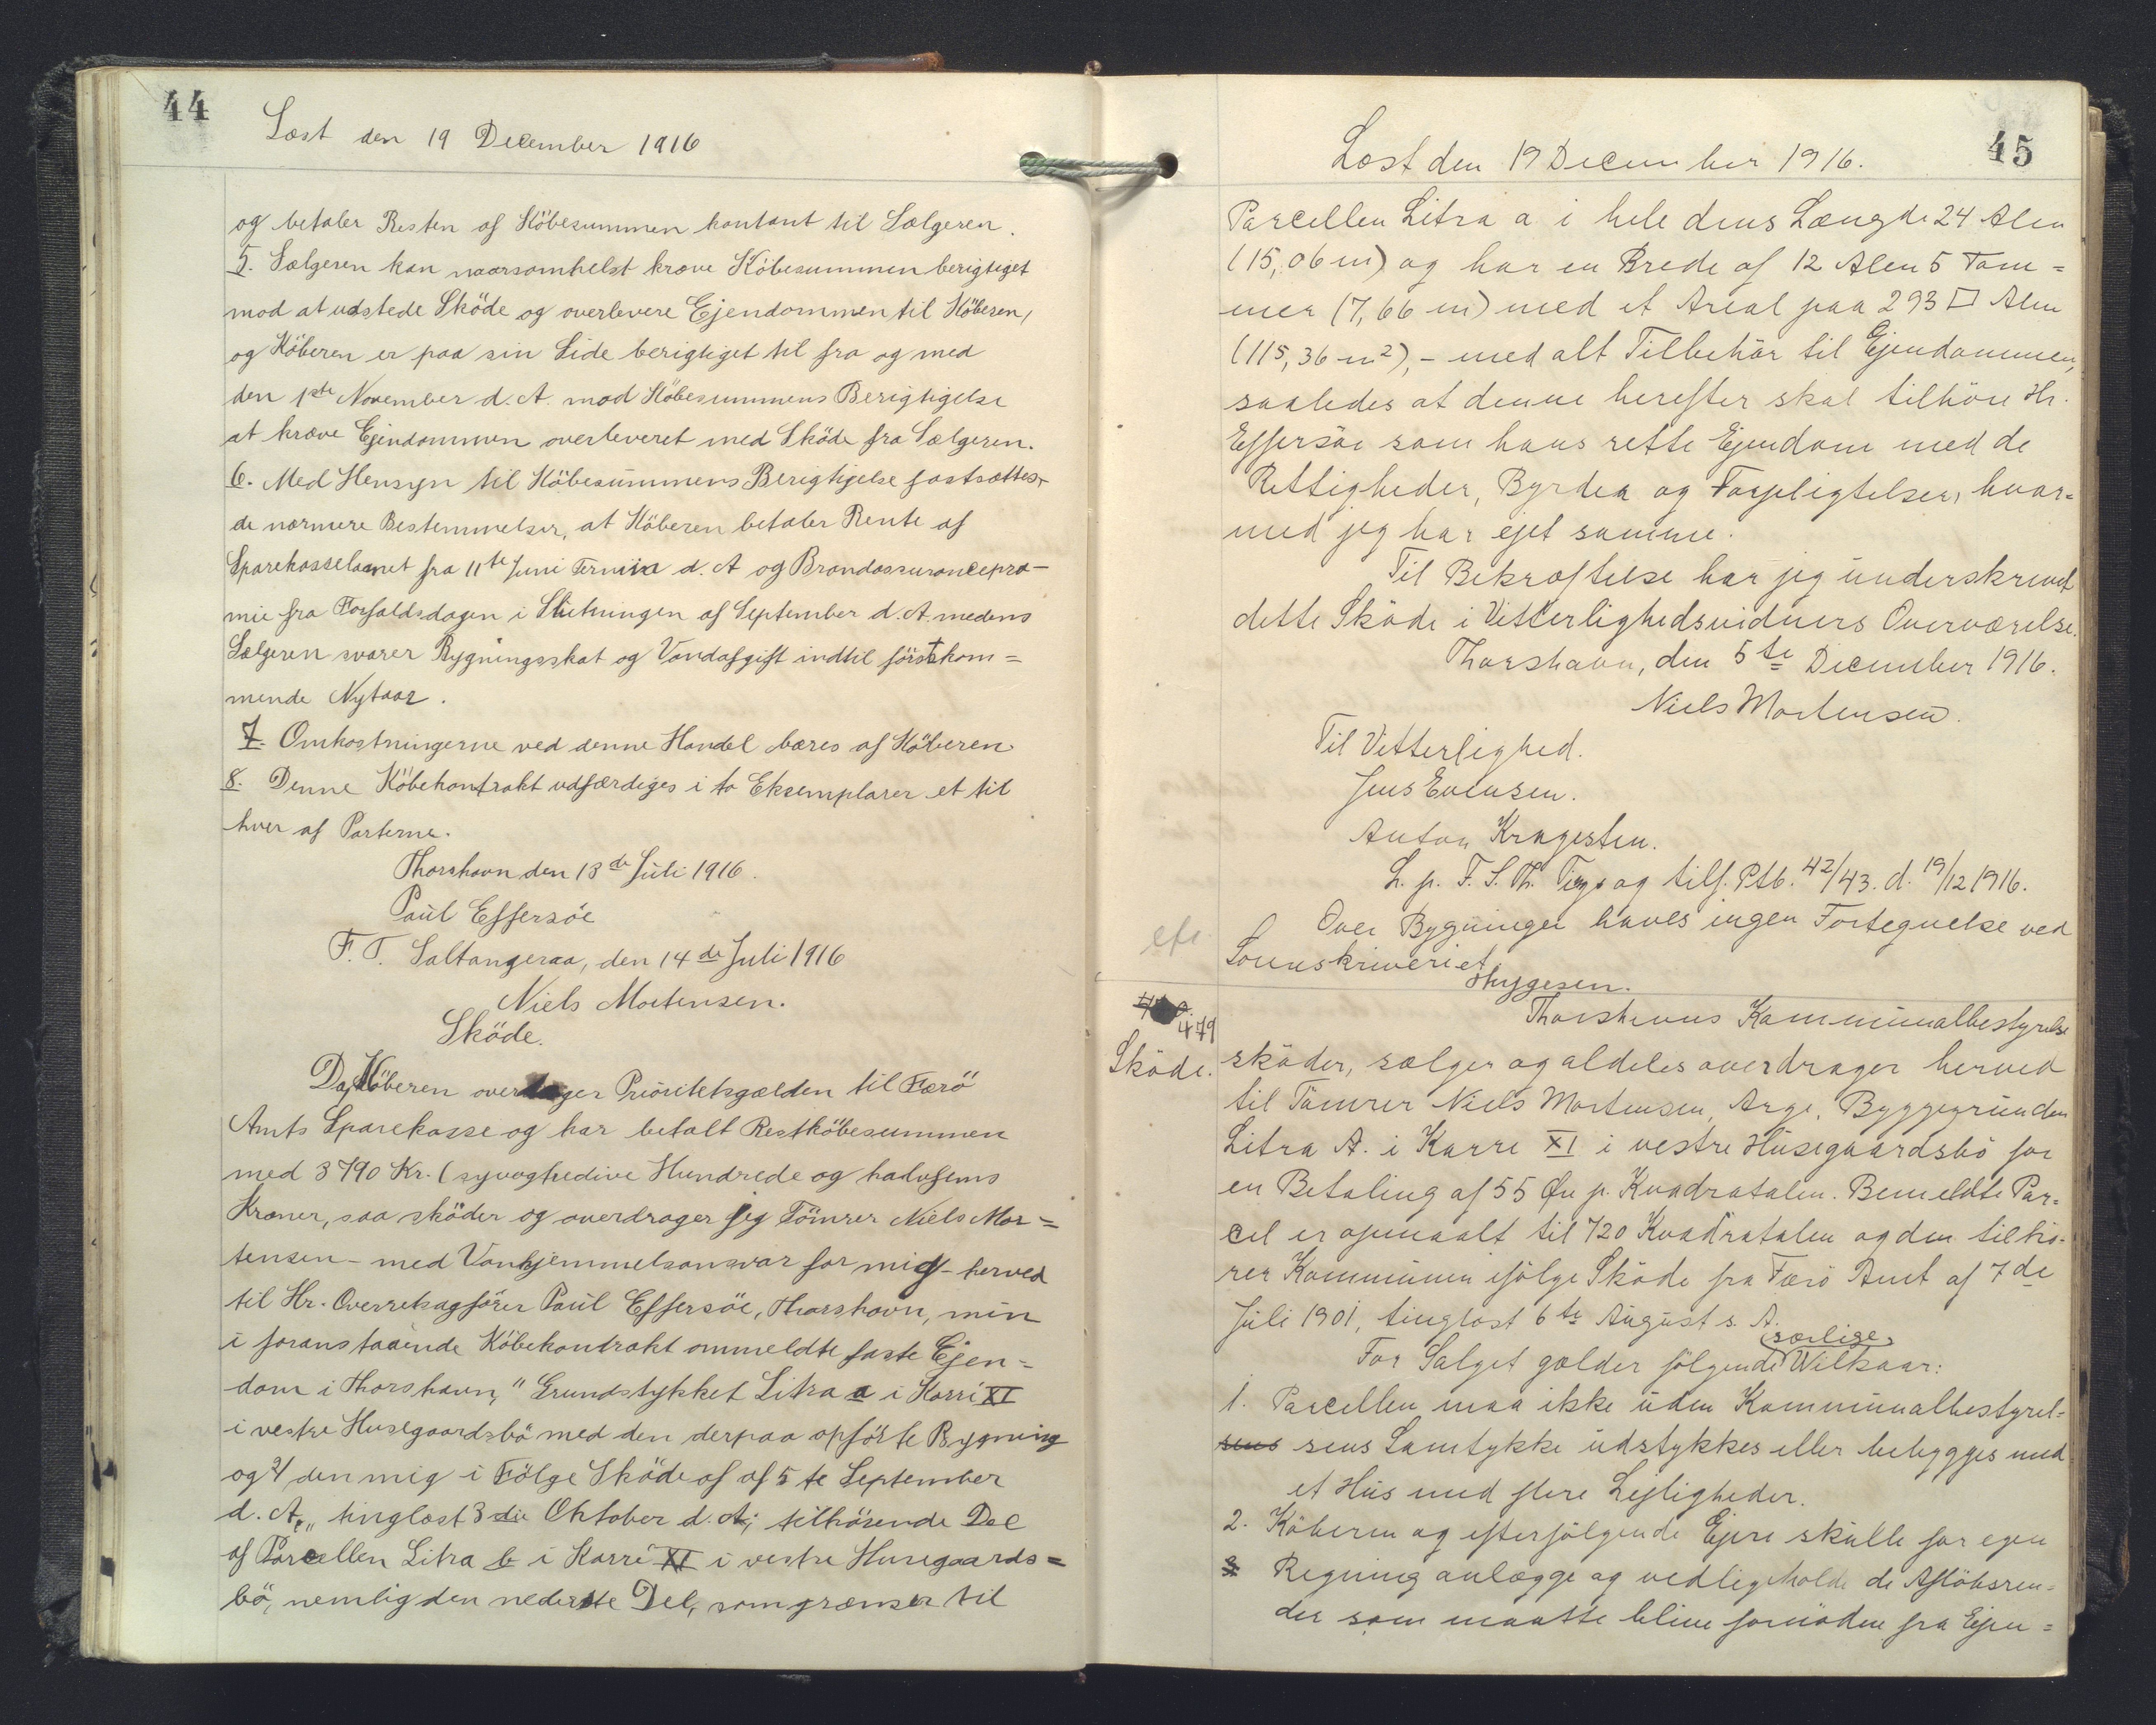 44
Læst den 19 December 1916
og betaler Resten af Köbesummen kontant til Sælgeren.
5. Sælgeren kan naarsomhelst kræve Köbesummen berigtiget
mod at udstede Sköde og overlevere Ejendommen til Köberen,
og Köberen er paa sin Side berigtiget til fra og med
den 1ste November d. A. mod Köbesummens Berigtigelse
at kræve Ejendommen overleveret med Sköde fra Sælgeren.
6. Med Hensyn til Köbesummens Berigtigelse fastsættes
de nærmere Bestemmelser, at Köberen betaler Rente af
Sparekasselaanet fra 11te Juni Termin d. A og Brandassurancepræ-
mie fra Forfaldsdagen i Slutningen af September d. A. medens
Sælgeren svarer Bygningsskat og Vandafgift indtil förstkom=
mende Nytaar.
7. Omkostningerne ved denne Handel bæres af Köberen
8. Denne Köbekontrakt udfærdiges i to Eksemplarer et til
hver af Parterne.
Thorshavn den 13de Juli 1916.
Paul Effersöe
F. T. Saltangeraa, den 14de Juli 1916
Niels Mortensen.
Sköde.
Da Köberen overtager Prioritetsgælden til Færö
Amts Sparekasse og har betalt Restköbesummen
med 3790 Kr. (syvogtredive Hundrede og halvfems
Kroner, saa sköder og overdrager jeg Tömrer Niels Mor=
tensen - med Vanhjemmelsansvar for mig - herved
til Hr. Overretssagförer Paul Effersöe, Thorshavn, min
i foranstaaende Köbekontrakt ommeldte faste Ejen=
dom i Thorshavn, "Grundstykket Litra a i Karré XI
i vestre Husegaardsbö med den derpaa opförte Bygning
og den mig i Fölge Sköde af af 5te September
d. A., tinglæst 3die Oktober d. A; tilhörende Del
af Parcellen Litra b i Karré XI i vestre Husegaards=
bö, nemlig den nederste Del, som grænser til
45
Læst den 19 December 1916.
Parcellen Litra a i hele dens Længde 24 Alen
(15,06 m) og har en Brede af 12 Alen 5 Tom=
mer (7,66 m) med et Areal paa 293 □ Alen
(115,36 m²), - med alt Tilbehör til Ejendommen,
saaledes at denne herefter skal tilhöre Hr.
Effersöe som hans rette Ejendom med de
Rettigheder, Byrder og Forpligtelser, hvor=
med jeg har ejet samme.
Til Bekræftelse har jeg underskrevet
dette Sköde i Vitterlighedsvidners Overværelse.
Thorshavn, den 5te December 1916.
Niels Mortensen.
Til Vitterlighed.
Jens Evensen.
Anton Kragesteen.
L. p. F. S. Th. Ting og tilf. Ptb. 42/43. d. 19/12 1916.
Over Bygninger haves ingen Fortegnelse ved
Sorenskriveriet
479
Sköde.
Thorshavns Kommunalbestyrelse
sköder, sælger og aldeles overdrager herved
til Tömrer Niels Mortensen, Arge, Byggegrunden
Litra A. i Karre XI i vestre Husegaardsbö for
en Betaling af 55 Øre p. Kvadratalen. Bemeldte Par=
cel er opmaalt til 720 Kvadratalen og den tilhö=
rer Kommunen ifölge Sköde fra Færö Amt af 7de
Juli 1901, tinglæst 6te August s. A.
For Salget gælder fölgende særlige Vilkaar:
1. Parcellen maa ikke uden Kommunalbestyrel=
sens sens Samtykke udstykkes eller bebygges med
et Hus med flere Lejligheder.
2. Köberen og efterfölgende Ejere skulle for egen
3 Regning anlægge og vedligeholde de Aflöbsren=
der som maatte blive fornöden fra Ejen=